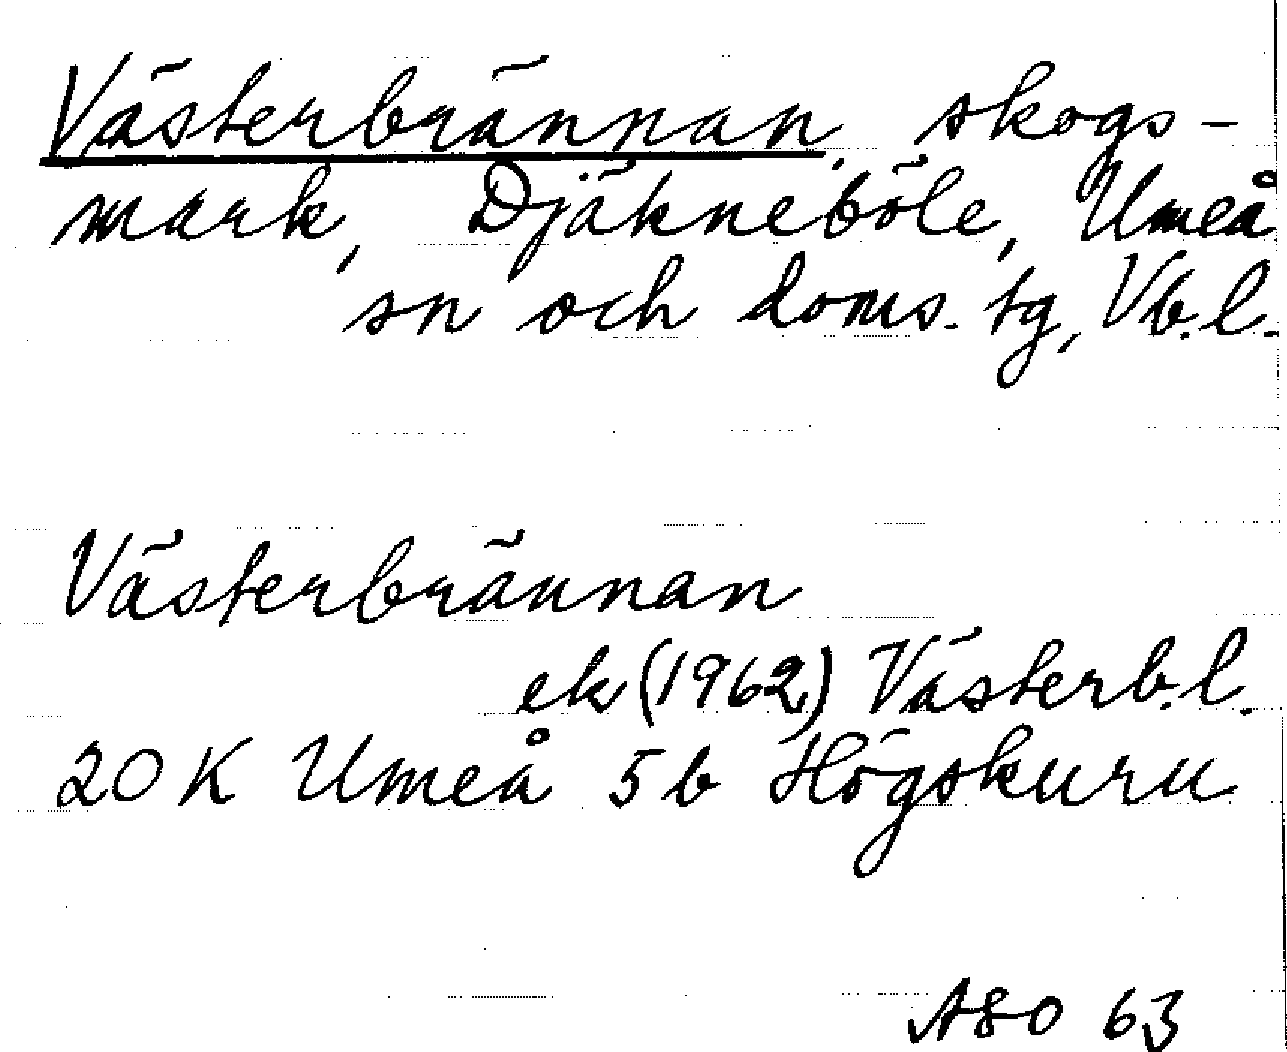 Västerbrännan, skogs-
mark, Djäkneböle, Umeå
sn och doms. tg, Vb.l.
Västerbrännan
ek (1962) Västerb.l.
20 K Umeå 5b Högskuru
ASO 63